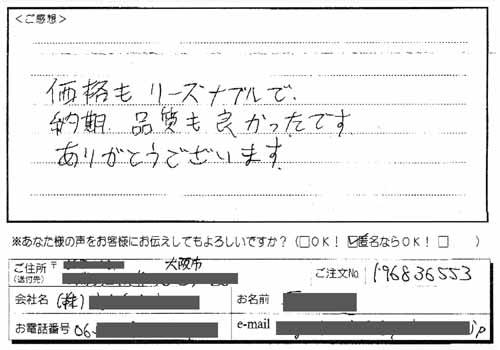 <ご感想>
価格もリーズナブルで、
納期、品質も良かったです
ありがとうございます
※あなた様の声をお客様にお伝えしてもよろしいですか？（□OK！ ☑匿名ならOK！ □ ）
ご住所 〒 大阪市 ご注文No 196836553
(送付先)
会社名 (株) お名前
お電話番号 06 e-mail jp